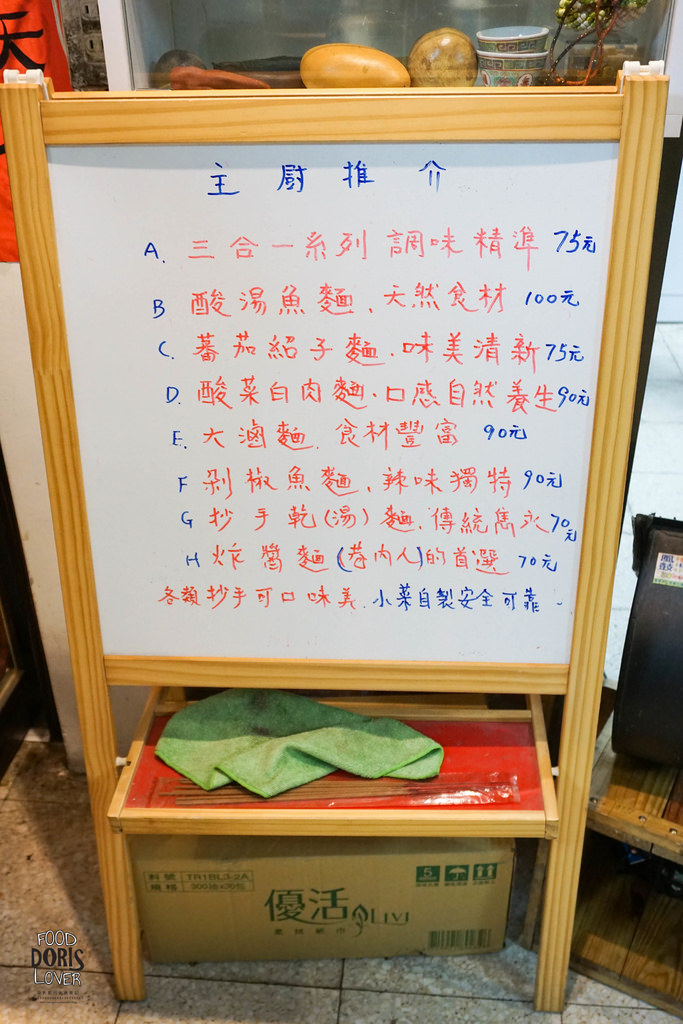 天
主廚推介
A. 三合一系列 調味精準 75元
B 酸湯魚麵、天然食材 100元
C. 蕃茄紹子麵.味美清新 75元
D. 酸菜白肉麵.口感自然養生 90元
E. 大滷麵.食材豐富 90元
F 剁椒魚麵、辣味獨特 90元
G 抄手乾(湯)麵.傳統雋永 70元
H 炸醬麵(巷內人)的首選 70元
各類抄手可口味美.小菜自製安全可靠
料號 TR1BL3-2A
規格 300抽×30包
優活 Livi
柔拭紙巾
FOOD
DORIS
LOVER